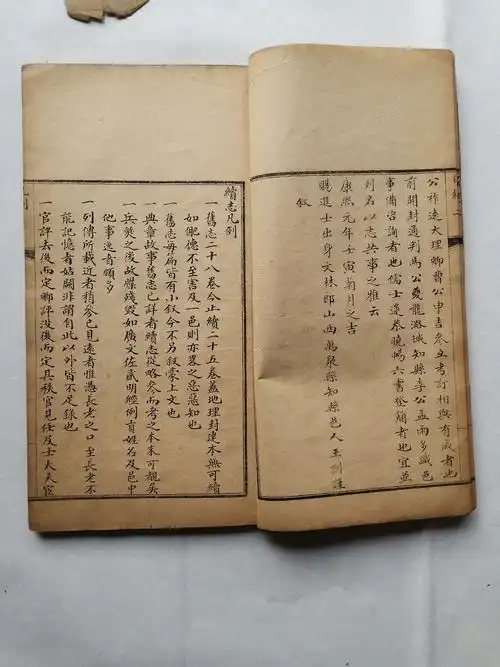 公祚遠大理卿曹公申吉參立考訂相與有成者也
前開封通判馬公變龍潞城知縣李公孟雨多識邑
事備咨詢者也儒士逢泰曉暢六書於簡者也宜並
列名以志共事之雅云
康熙元年壬寅菊月之吉
賜進士出身文林郎山西萬泉縣知縣邑人王訓謹
叙
續志凡例
一舊志二十八卷今止續二十五卷蓋地理封連本無可續
如能德不至害及一邑則亦畧之惡惡知也
一舊志每篇皆有小叙今不另叙蒙上文也
一典章故事舊志已詳者續志從略參而考之本末可槪矣
一兵燹之後故牒殘毀如廣文佐貳明經例貢姓名及邑中
他事逸者頗多
一列傳所載近者稍參己見遠者惟憑長老之口至長老不
能記憶者姑闕非謂自此以外皆不足錄也
一官評去後而定鄉評沒後而定其秩官見任及士大夫宦